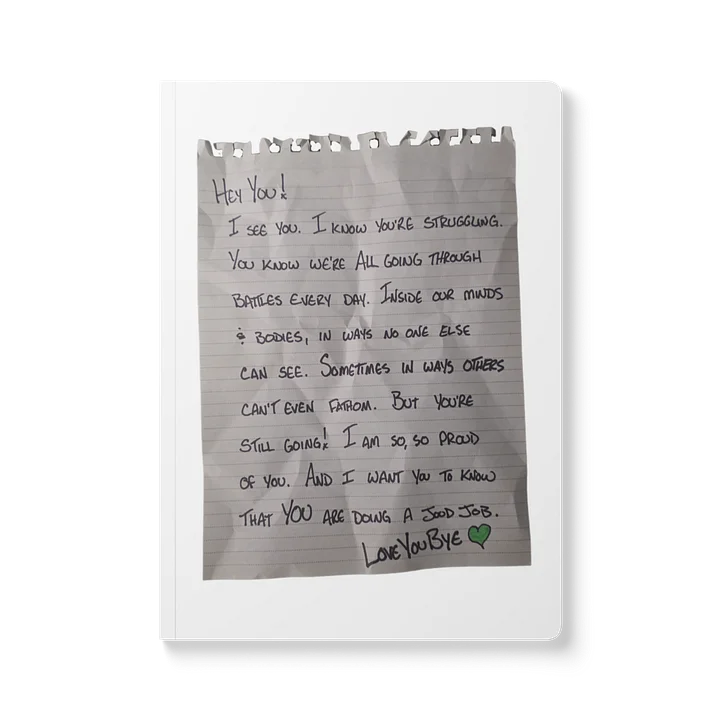 Hey You!
I see you. I know you're struggling.
You know we're All going through
battles every day. Inside our minds
& bodies, in ways no one else
can see. Sometimes in ways others
can't even fathom. But you're
still going! I am so, so proud
of you. And I want you to know
that YOU are doing a JOOD JOB.
Love You Bye